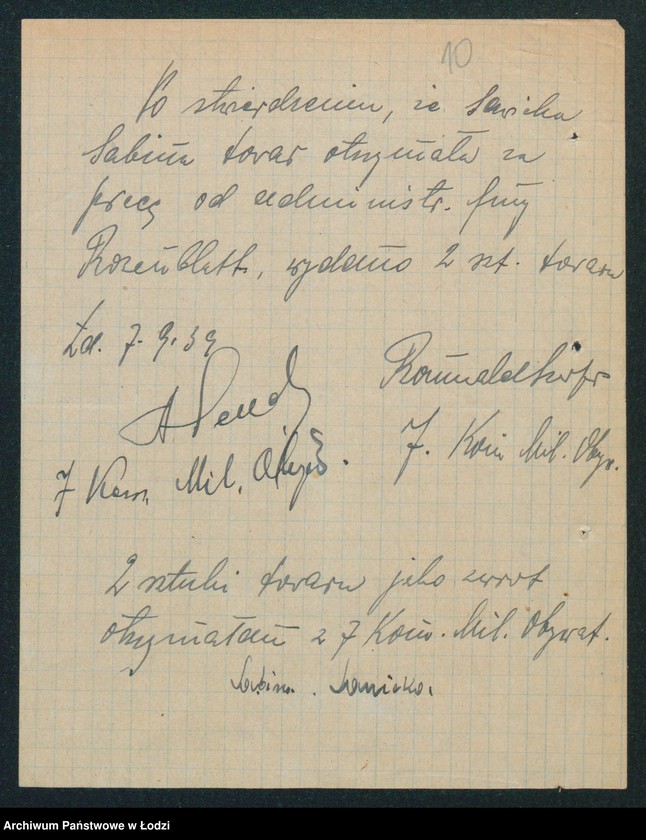 10
Po stwierdzeniu, że Sawicka
Sabina towar otrzymała za
pracę od administr. firmy
Rosenblatt, wydano 2 szt. towaru
Łd. 7. 9. 39
Romuald
7 Kom. Mil. Obyw.
7. Kom Mil. Obyw.
2 sztuki towaru jako zwrot
otrzymałam z 7 Kom. Mil. Obywat.
Sabina Sawicka.
Archiwum Państwowe w Łodzi